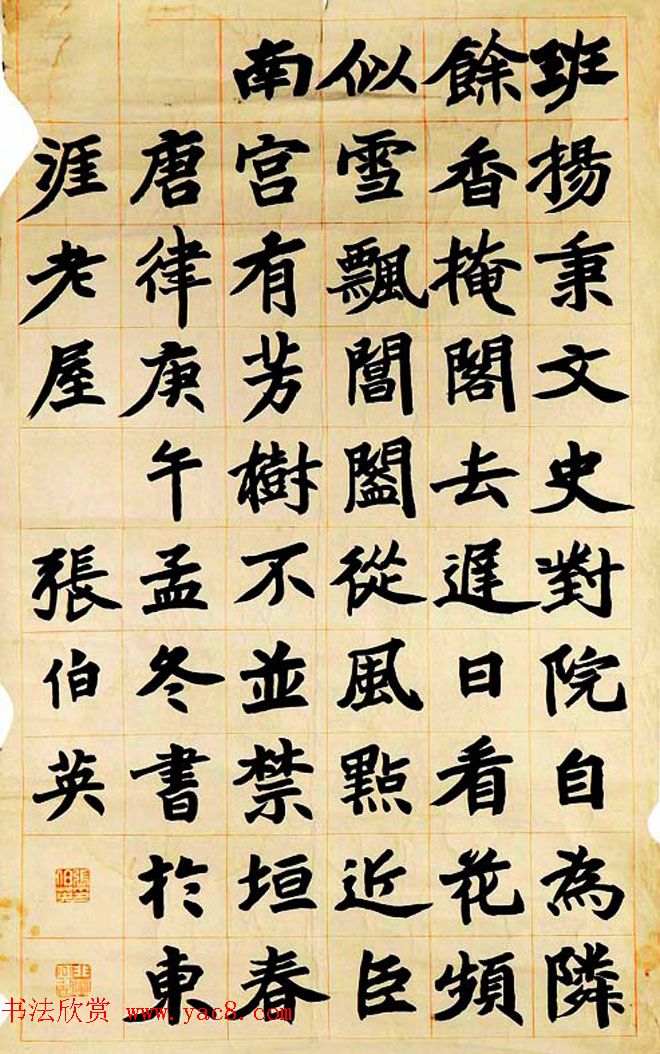 班揚秉文史對院自為隣
餘香掩閣去遲日看花頻
似雪飄閶闔從風點近臣
南宮有芳樹不並禁垣春
唐律庚午孟冬書於東
涯老屋 張伯英
书法欣赏 www.yac8.com